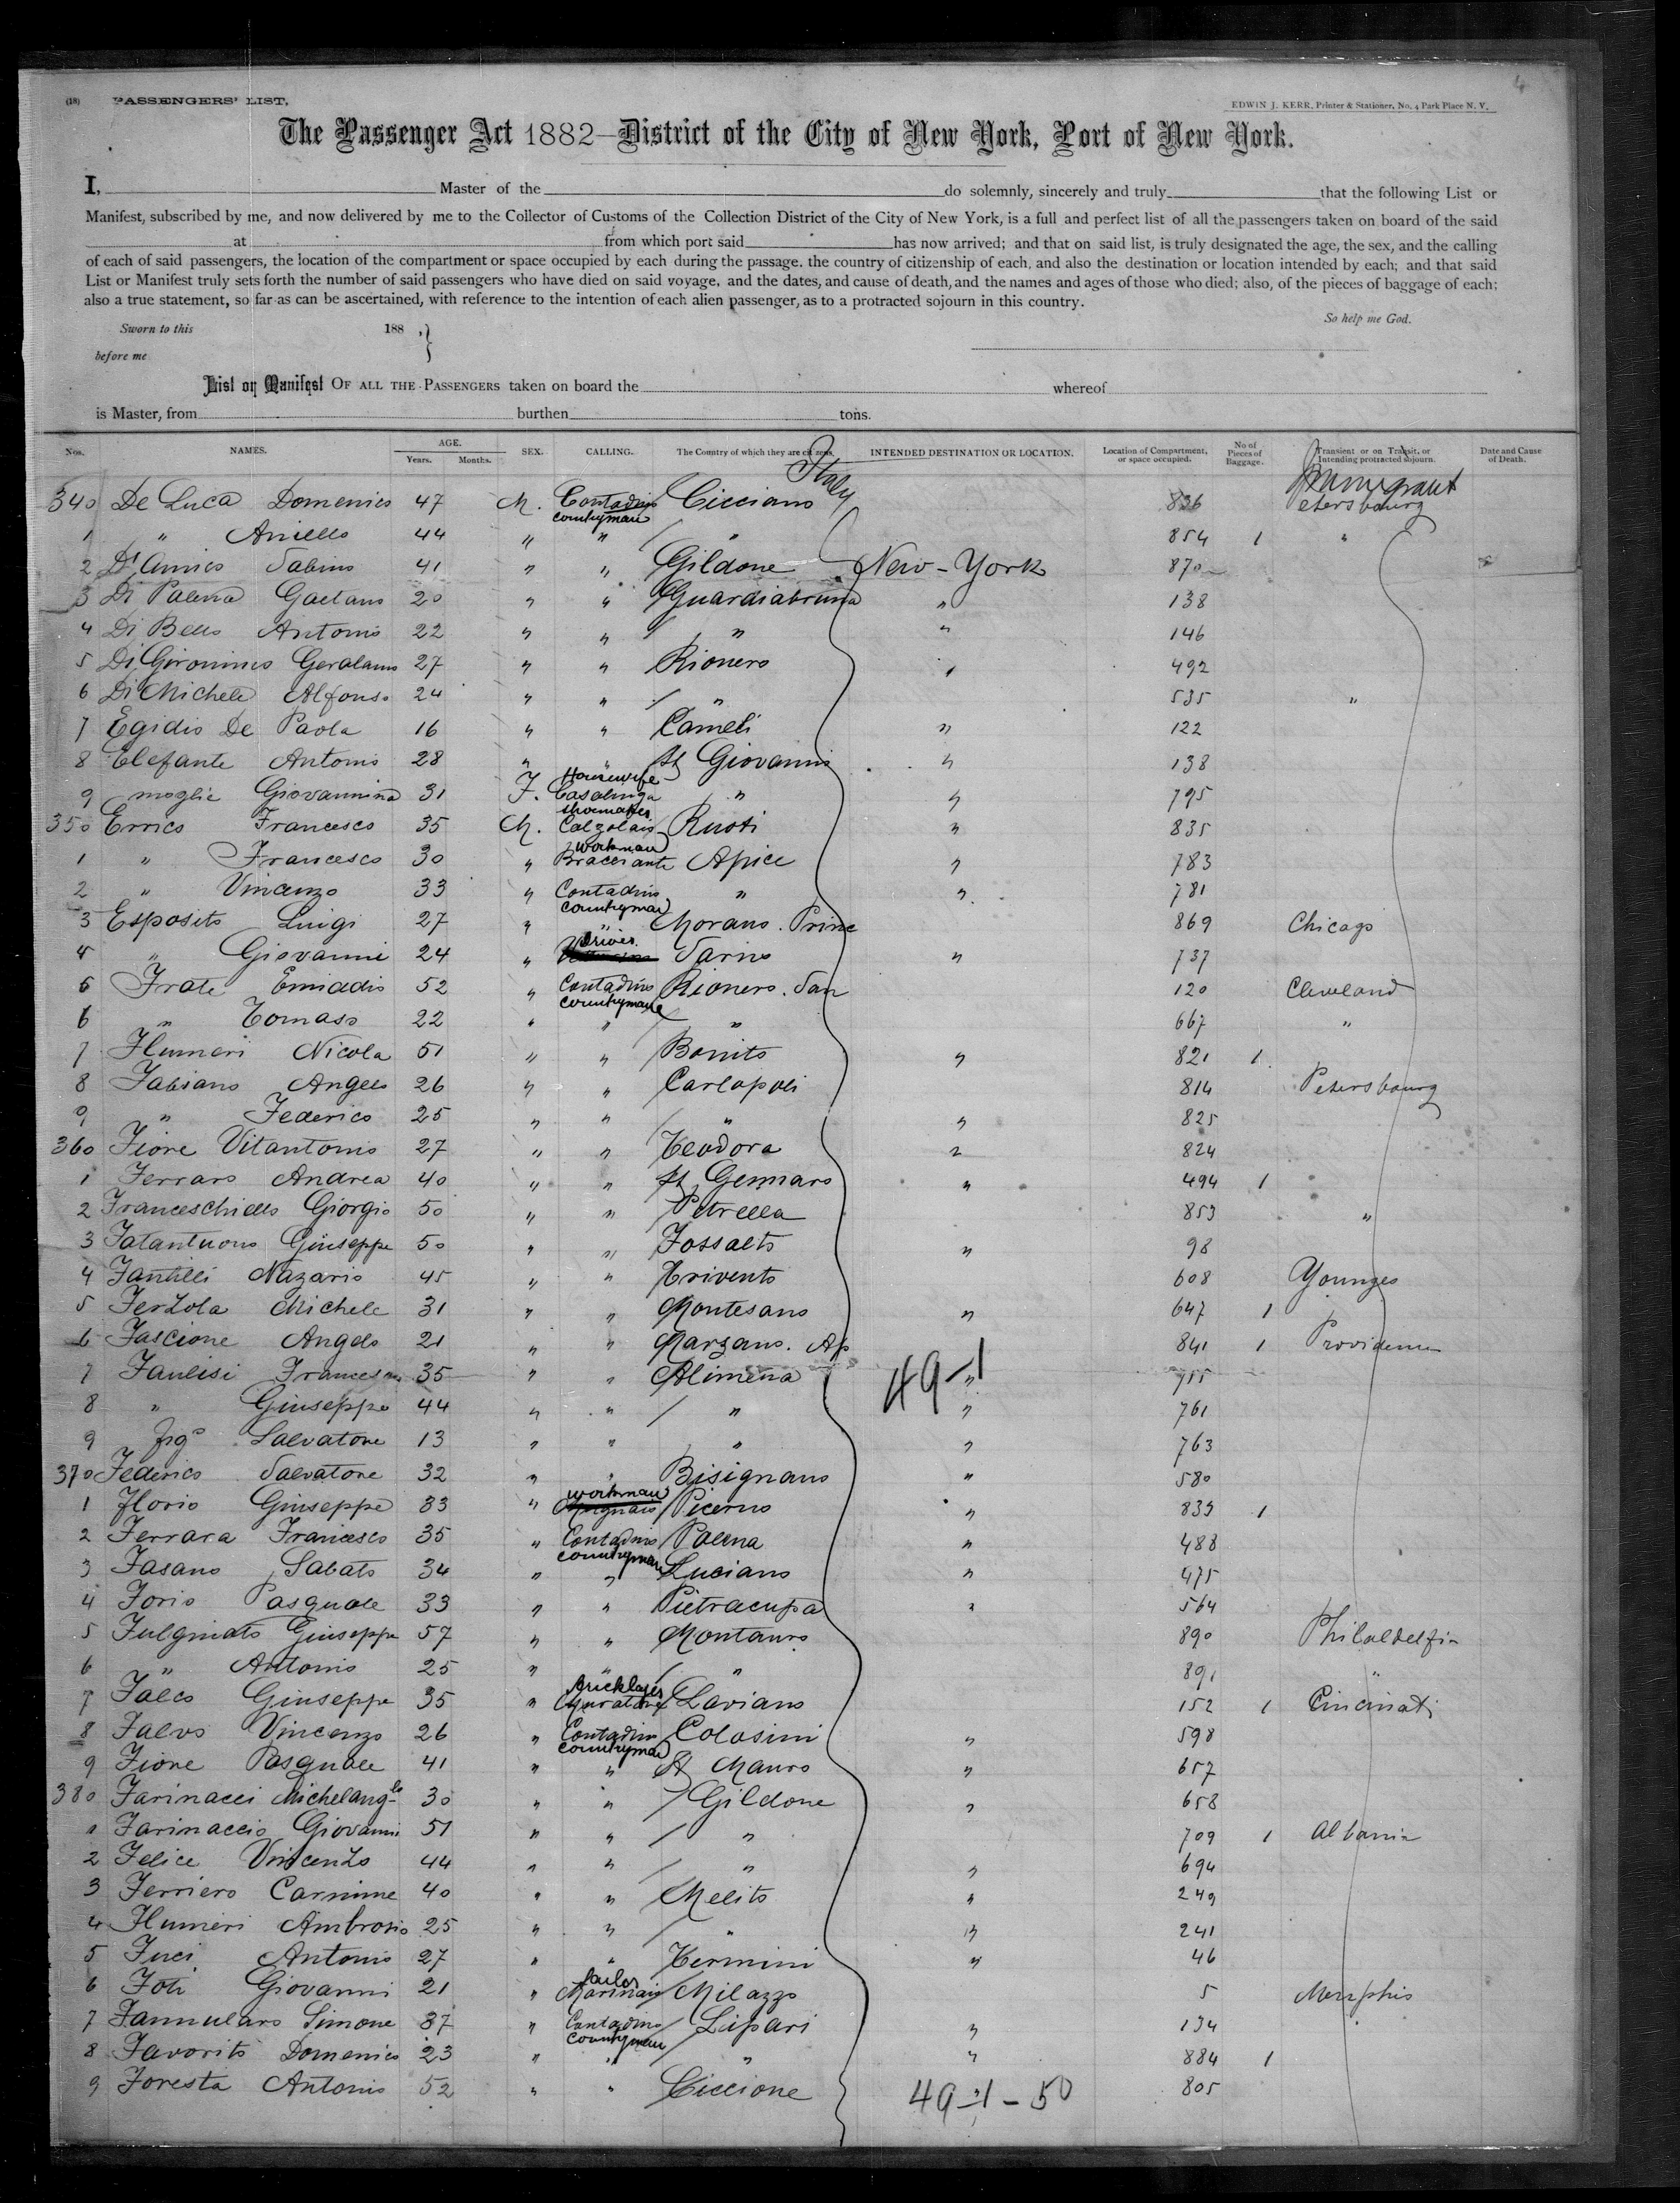 4
(18) PASSENGERS' LIST.
EDWIN J. KERR, Printer & Stationer, No. 4 Park Place N. Y.
The Passenger Act 1882—District of the City of New York, Port of New York.
I, Master of the do solemnly, sincerely and truly that the following List or
Manifest, subscribed by me, and now delivered by me to the Collector of Customs of the Collection District of the City of New York, is a full and perfect list of all the passengers taken on board of the said
at from which port said has now arrived; and that on said list, is truly designated the age, the sex, and the calling
of each of said passengers, the location of the compartment or space occupied by each during the passage, the country of citizenship of each, and also the destination or location intended by each; and that said
List or Manifest truly sets forth the number of said passengers who have died on said voyage, and the dates, and cause of death, and the names and ages of those who died; also, of the pieces of baggage of each;
also a true statement, so far as can be ascertained, with reference to the intention of each alien passenger, as to a protracted sojourn in this country.
So help me God.
Sworn to this 188 ,
before me
List or Manifest OF ALL THE PASSENGERS taken on board the whereof
is Master, from burthen tons.
Nos. NAMES. AGE. Years. Months. SEX. CALLING. The Country of which they are citizens. INTENDED DESTINATION OR LOCATION. Location of Compartment, or space occupied. No of Pieces of Baggage. Transient or on Transit, or Intending protracted sojourn. Date and Cause of Death.
Italy Immigrant
340 De Luca Domenico 47 M. Contadino countryman Cicciano 836 Petersbourg
1 " Aniello 44 " " " 854 1 "
2 D'Amico Sabino 41 " " Gildone New-York 870
3 Di Palena Gaetano 20 " " Guardiabruna " 138
4 Di Bello Antonio 22 " " " " 146
5 Di Gironimo Geralamo 27 " " Rionero " 492
6 Di Michele Alfonso 24 " " " 535 "
7 Egidio De Paola 16 " " Cameli " 122
8 Elefante Antonio 28 " " St Giovanni " 138
9 moglie Giovannina 31 F. Housewife Casalinga " " 795
350 Errico Francesco 35 M. shoemaker Calzolaio Ruoti " 835
1 " Francesco 30 " workman Bracciante Apice " 783
2 " Vincenzo 33 " Contadino countryman " " 781
3 Esposito Luigi 27 " " Morano. Princ 869 Chicago
4 " Giovanni 24 " Driver. Sarno " 737
5 Frate Emiddio 52 " Contadino countryman Rionero. San 120 Cleveland
6 " Tomaso 22 " " " 667 "
7 Flumeri Nicola 51 " " Bonito " 821 1
8 Fabiano Angelo 26 " " Carlopoli 814 Petersbourg
9 " Federico 25 " " " " 825
360 Fiore Vitantonio 27 " " Teodora " 824
1 Ferraro Andrea 40 " " St Gennaro " 494 1
2 Franceschiello Giorgio 50 " " Petrella 853 "
3 Fatantuono Giuseppe 50 " " Fossalto " 98
4 Fantilli Nazario 45 " " Trivento 608 Younges
5 Ferzola Michele 31 " " Montesano " 647 1
6 Fascione Angelo 21 " " Marzano. Ap 841 1 Providence
49-1
7 Faulisi Francesco 35 " " Alimena " 755
8 " Giuseppe 44 " " " " 761
9 figo Salvatore 13 " " " " 763
370 Federico Salvatore 32 " " Bisignano " 580
1 Florio Giuseppe 33 " workman Picerno " 839 1
2 Ferrara Francesco 35 " Contadino countryman Palena " 488
3 Fasano Sabato 34 " " Luciano " 475
4 Forio Pasquale 33 " " Pietracupa " 564
5 Fulginato Giuseppe 57 " " Montauro 890 Philaldelfia
6 " Antonio 25 " " " 891 "
7 Falco Giuseppe 35 " Bricklayer Muratore Laviano 152 1 Cincinati
8 Falvo Vincenzo 26 " Contadino countryman Colosimi " 598
9 Fione Pasquale 41 " " St Mauro " 657
380 Farinacci Michelangelo 30 " " Gildone " 658
1 Farinaccio Giovanni 51 " " " 709 1 Albania
2 Felice Vincenzo 44 " " " " 694
3 Ferriero Carmine 40 " " Melito " 249
4 Flumeri Ambrosio 25 " " " " 241
5 Fuci Antonio 27 " " Termini " 46
6 Foti Giovanni 21 " sailor Marinaio Milazzo 5 Memphis
7 Fannularo Simone 37 " Contadino countryman Lipari " 134
8 Favorito Domenico 23 " " " " 884 1
9 Foresta Antonio 52 " " Ciccione " 805
49-1-50